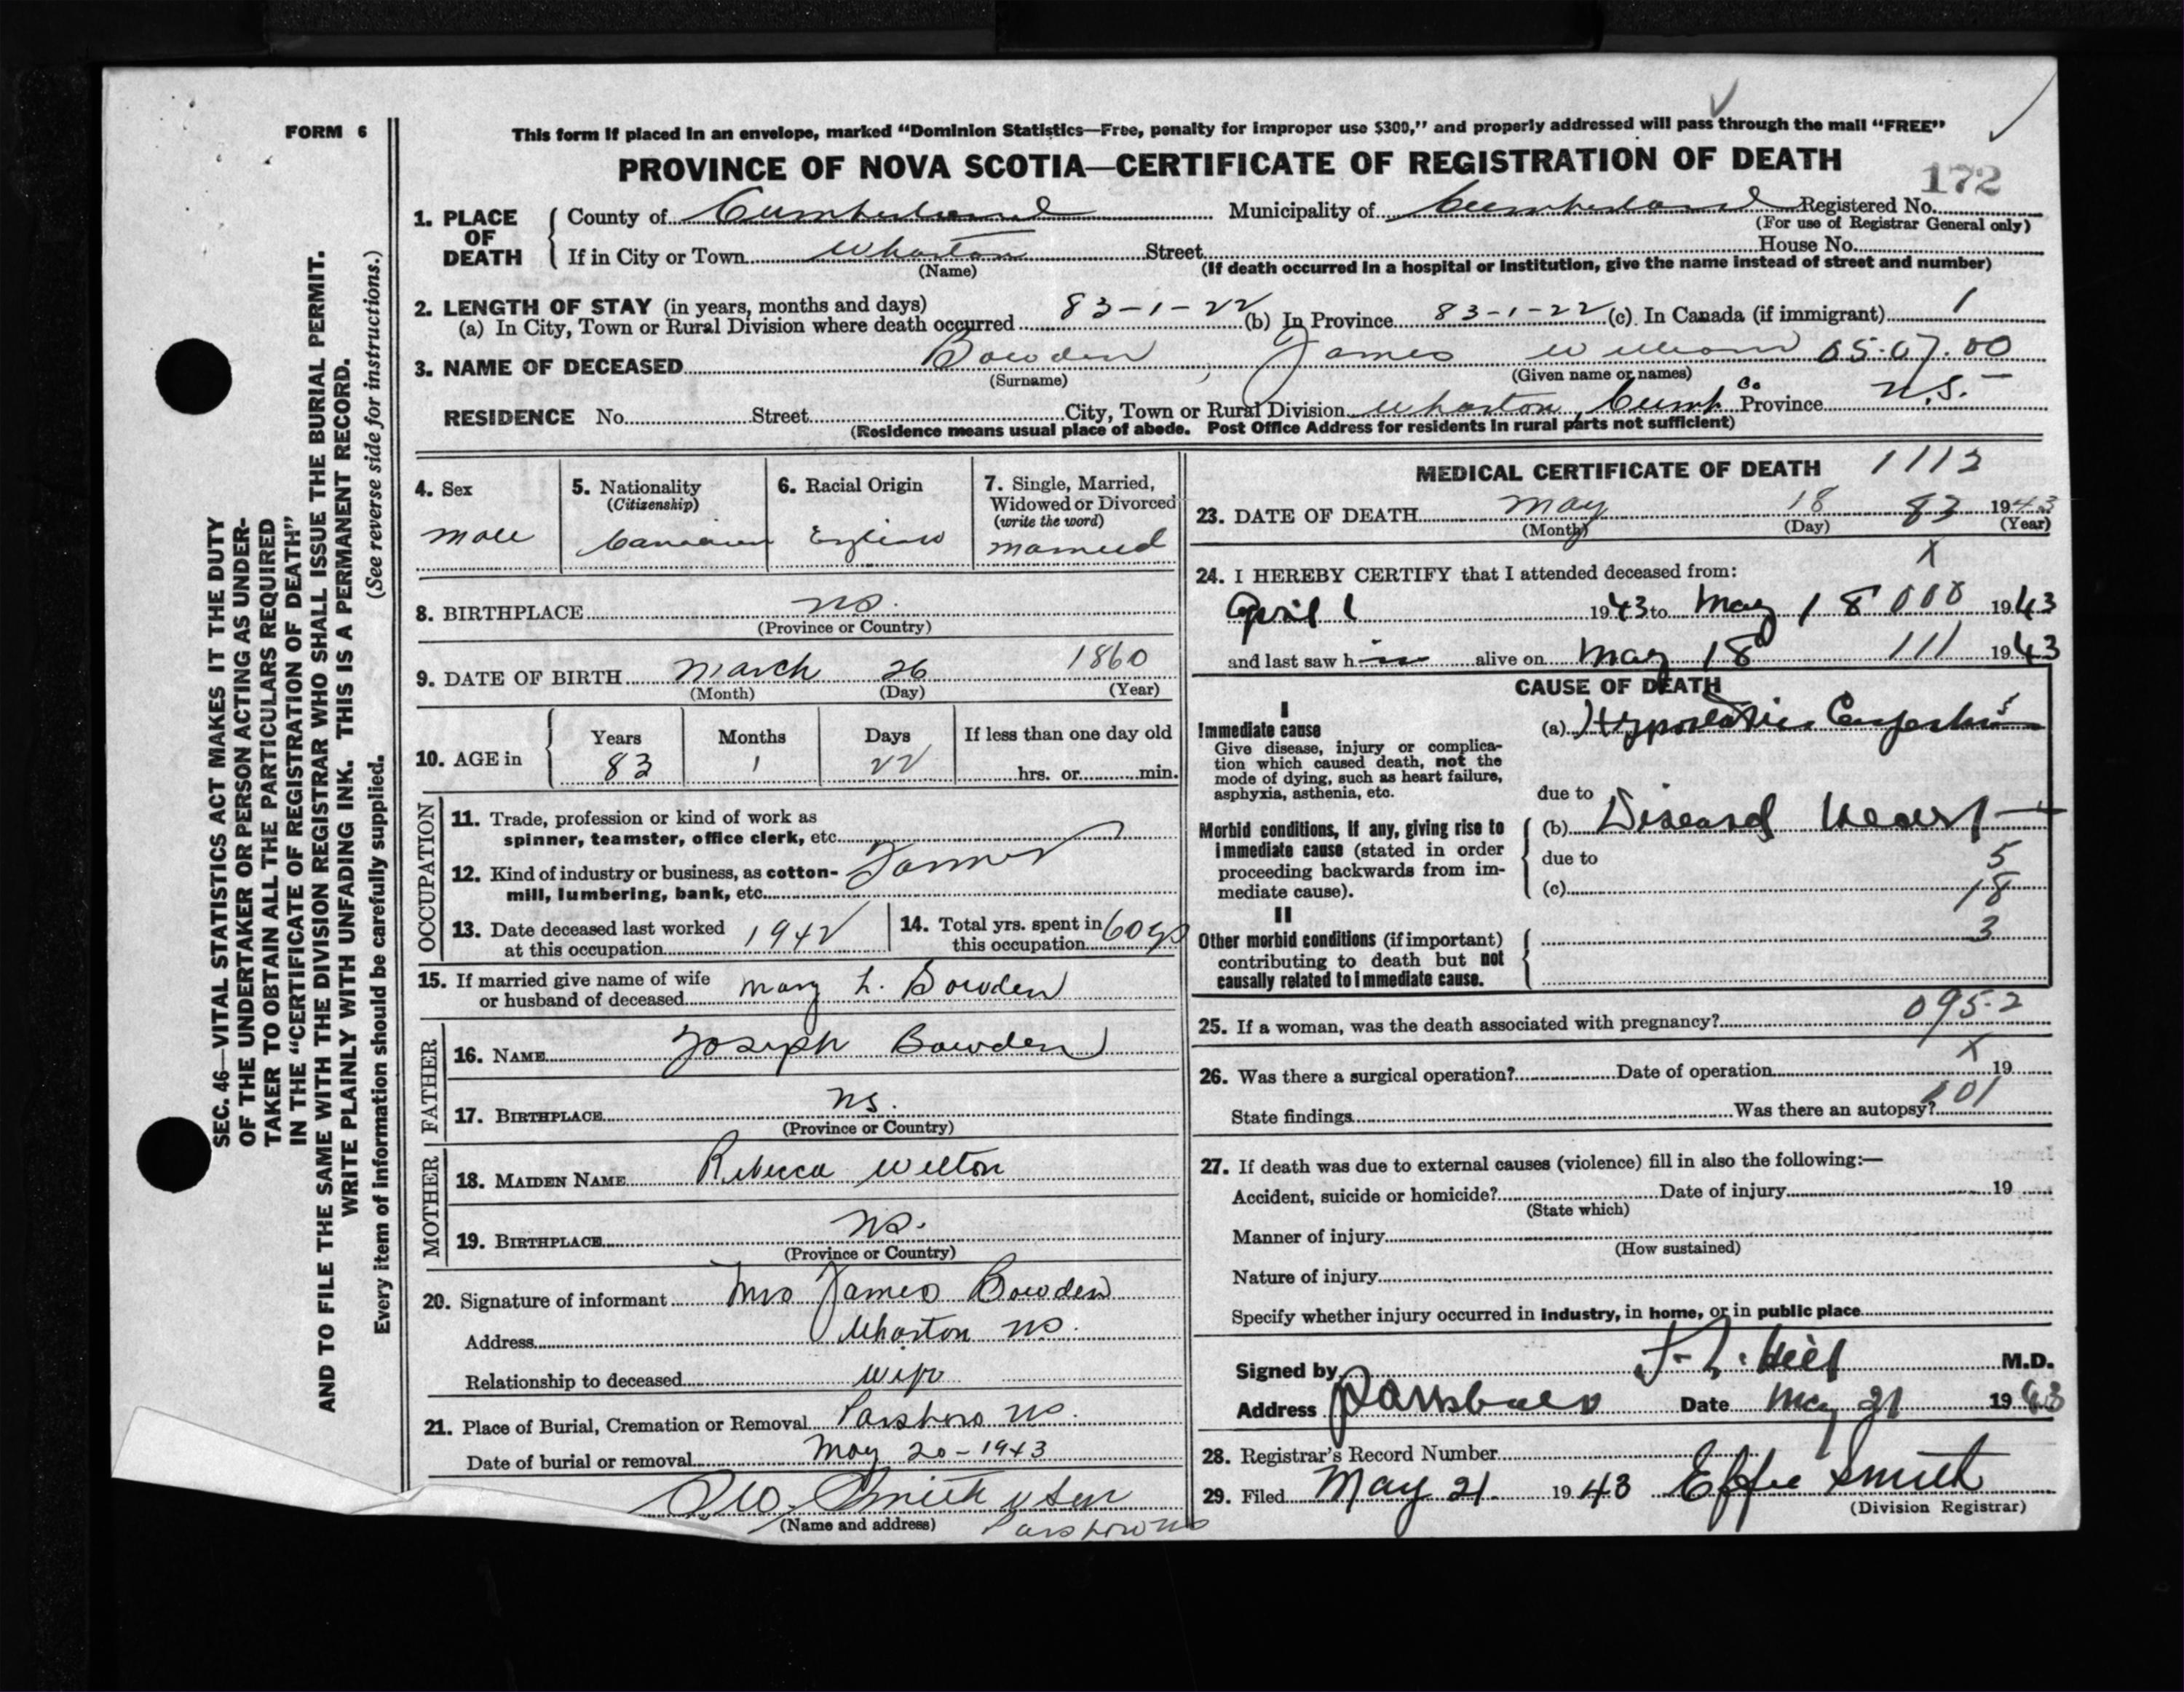 FORM 6
This form if placed in an envelope, marked "Dominion Statistics—Free, penalty for improper use $300," and properly addressed will pass through the mail "FREE"
PROVINCE OF NOVA SCOTIA—CERTIFICATE OF REGISTRATION OF DEATH
172
1. PLACE OF DEATH
County of Cumberland Municipality of Cumberland Registered No.
(For use of Registrar General only)
If in City or Town Wharton Street House No.
(Name) (If death occurred in a hospital or institution, give the name instead of street and number)
2. LENGTH OF STAY (in years, months and days)
(a) In City, Town or Rural Division where death occurred 83-1-22 (b) In Province 83-1-22 (c) In Canada (if immigrant) 1
3. NAME OF DECEASED Bowden, James William 05.07.00
(Surname) (Given name or names)
RESIDENCE No. Street City, Town or Rural Division Wharton, Cumb. Co Province N.S.
(Residence means usual place of abode. Post Office Address for residents in rural parts not sufficient)
SEC. 46—VITAL STATISTICS ACT MAKES IT THE DUTY
OF THE UNDERTAKER OR PERSON ACTING AS UNDER-
TAKER TO OBTAIN ALL THE PARTICULARS REQUIRED
IN THE "CERTIFICATE OF REGISTRATION OF DEATH"
AND TO FILE THE SAME WITH THE DIVISION REGISTRAR WHO SHALL ISSUE THE BURIAL PERMIT.
WRITE PLAINLY WITH UNFADING INK. THIS IS A PERMANENT RECORD.
Every item of information should be carefully supplied. (See reverse side for instructions.)
4. Sex
male
5. Nationality
(Citizenship)
Canadian
6. Racial Origin
English
7. Single, Married,
Widowed or Divorced
(write the word)
married
8. BIRTHPLACE NS.
(Province or Country)
9. DATE OF BIRTH March 26 1860
(Month) (Day) (Year)
10. AGE in
Years Months Days If less than one day old
83 1 22 hrs. or min.
OCCUPATION
11. Trade, profession or kind of work as
spinner, teamster, office clerk, etc.
Farmer
12. Kind of industry or business, as cotton-
mill, lumbering, bank, etc.
13. Date deceased last worked
at this occupation 1942
14. Total yrs. spent in
this occupation 60 yrs
15. If married give name of wife
or husband of deceased Mary L. Bowden
FATHER
16. NAME Joseph Bowden
17. BIRTHPLACE NS.
(Province or Country)
MOTHER
18. MAIDEN NAME Rebecca Welton
19. BIRTHPLACE NS.
(Province or Country)
20. Signature of informant Mrs James Bowden
Address Wharton NS.
Relationship to deceased Wife
21. Place of Burial, Cremation or Removal Parrsboro NS.
Date of burial or removal May 20-1943
Smith & Son
(Name and address) Parrsboro NS
MEDICAL CERTIFICATE OF DEATH 1112
23. DATE OF DEATH May 18 83 1943
(Month) (Day) (Year)
X
24. I HEREBY CERTIFY that I attended deceased from:
April 1 1943 to May 18 000 1943
and last saw him alive on May 18 111 1943
CAUSE OF DEATH
I
Immediate cause
Give disease, injury or complica-
tion which caused death, not the
mode of dying, such as heart failure,
asphyxia, asthenia, etc.
(a) Hypostatic Congestion
5
due to
Morbid conditions, if any, giving rise to
immediate cause (stated in order
proceeding backwards from im-
mediate cause).
(b) Diseased Heart
due to
5
(c)
18
II
3
Other morbid conditions (if important)
contributing to death but not
causally related to immediate cause.
095.2
25. If a woman, was the death associated with pregnancy?
X
26. Was there a surgical operation? Date of operation 19
State findings Was there an autopsy? 101
27. If death was due to external causes (violence) fill in also the following:—
Accident, suicide or homicide? Date of injury 19
(State which)
Manner of injury
(How sustained)
Nature of injury
Specify whether injury occurred in industry, in home, or in public place
Signed by Hill M.D.
Address Parrsboro Date May 21 1943
28. Registrar's Record Number
29. Filed May 21. 1943 Effie Smith
(Division Registrar)